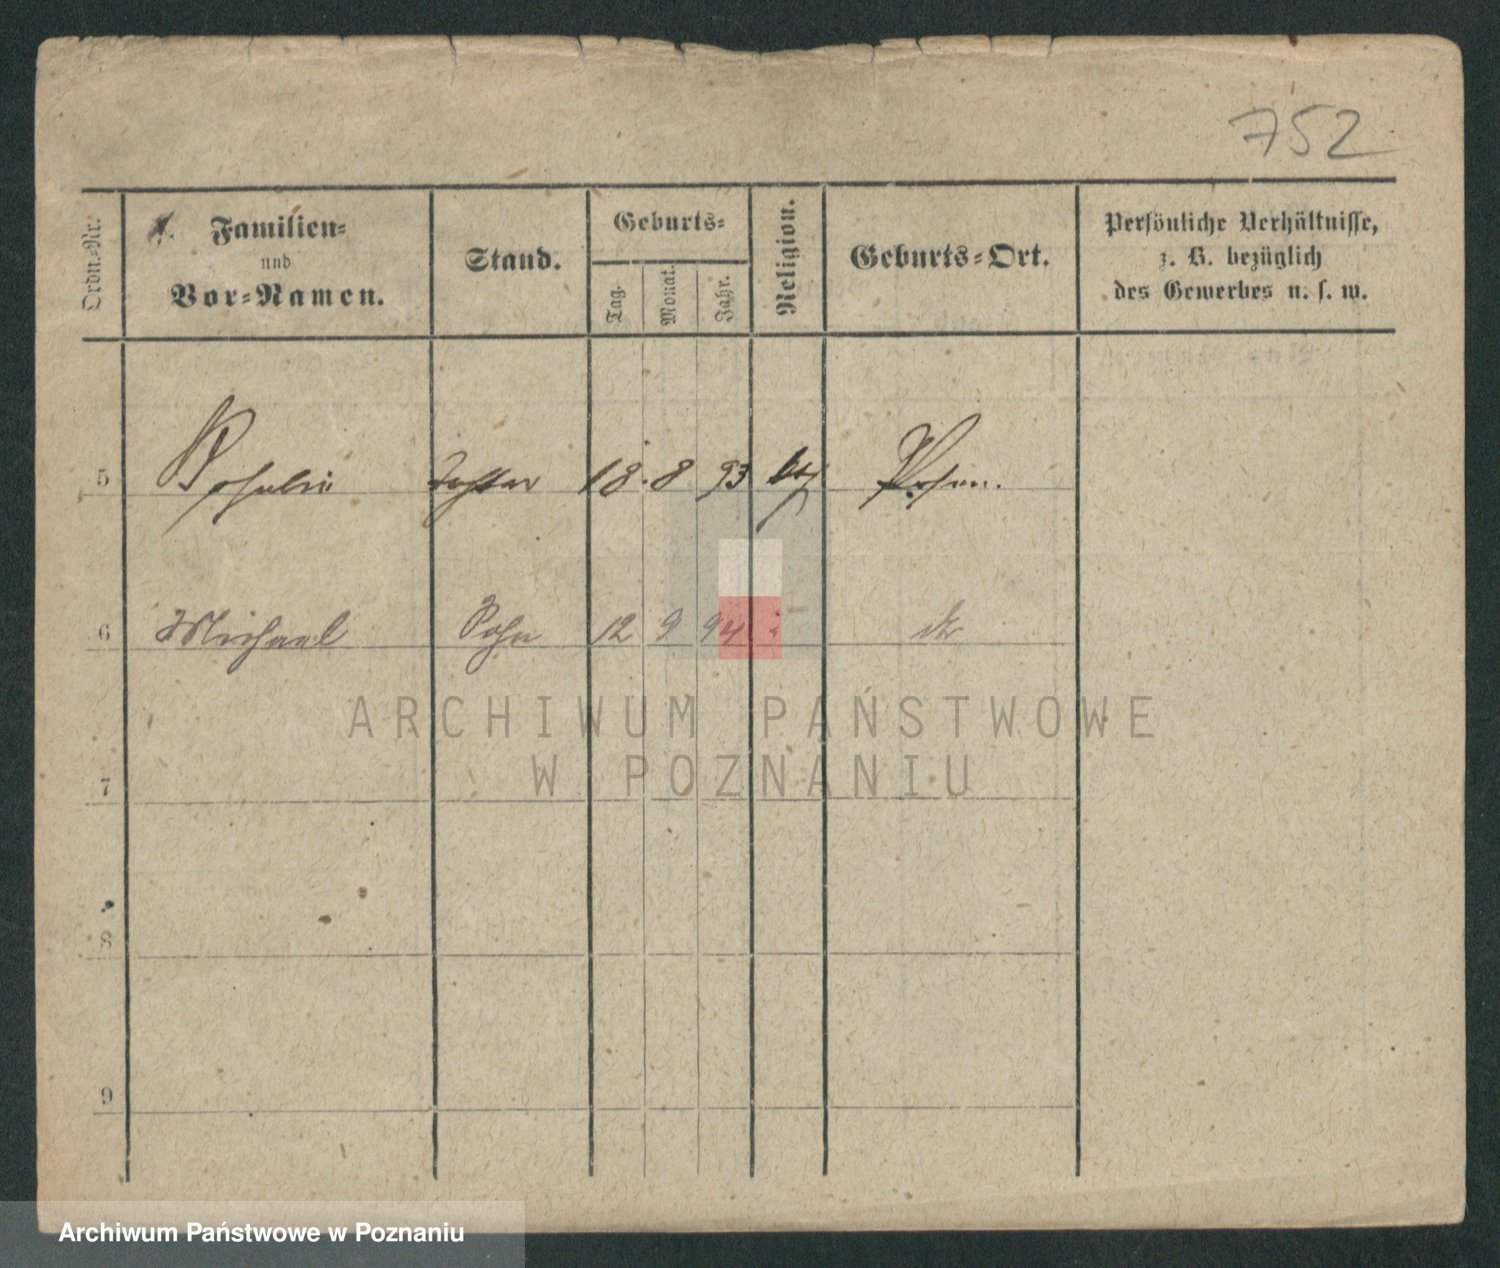 752
Ordn.-Nr.
Familien-
und
Vor-Namen.
Stand.
Geburts-
Tag.
Monat.
Jahr.
Religion.
Geburts-Ort.
Persönliche Verhältnisse,
z. B. bezüglich
des Gewerbes u. s. w.
5 Tochter 18. 8 93 Posen.
6 Michael Sohn 12 9 94
ARCHIWUM PAŃSTWOWE
W POZNANIU
7
8
9
Archiwum Państwowe w Poznaniu